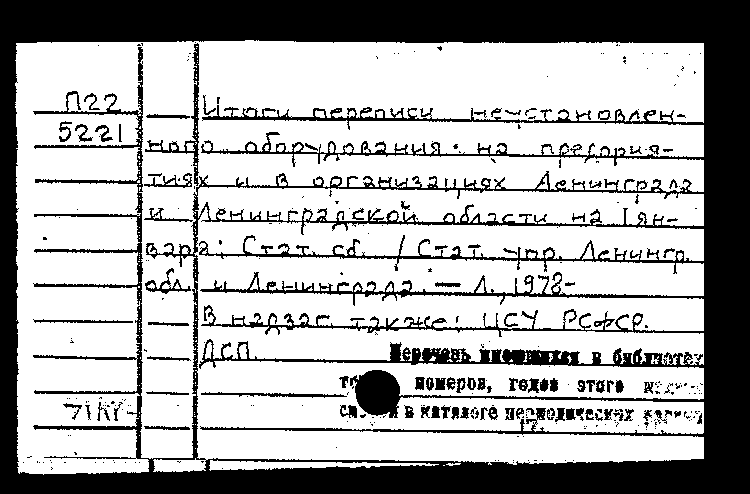 П22
5221
Итоги переписи неустановлен-
ного оборудования на предприя-
тиях и в организациях Ленинграда
и Ленинградской области на 1 ян-
варя: Стат. сб. / Стат. упр. Ленингр.
обл. и Ленинграда. — Л., 1978-
В надзаг. также: ЦСУ РСФСР.
ДСП.
Перечень имеющихся в библиотек
номеров, годов этого
в каталоге периодических
17.